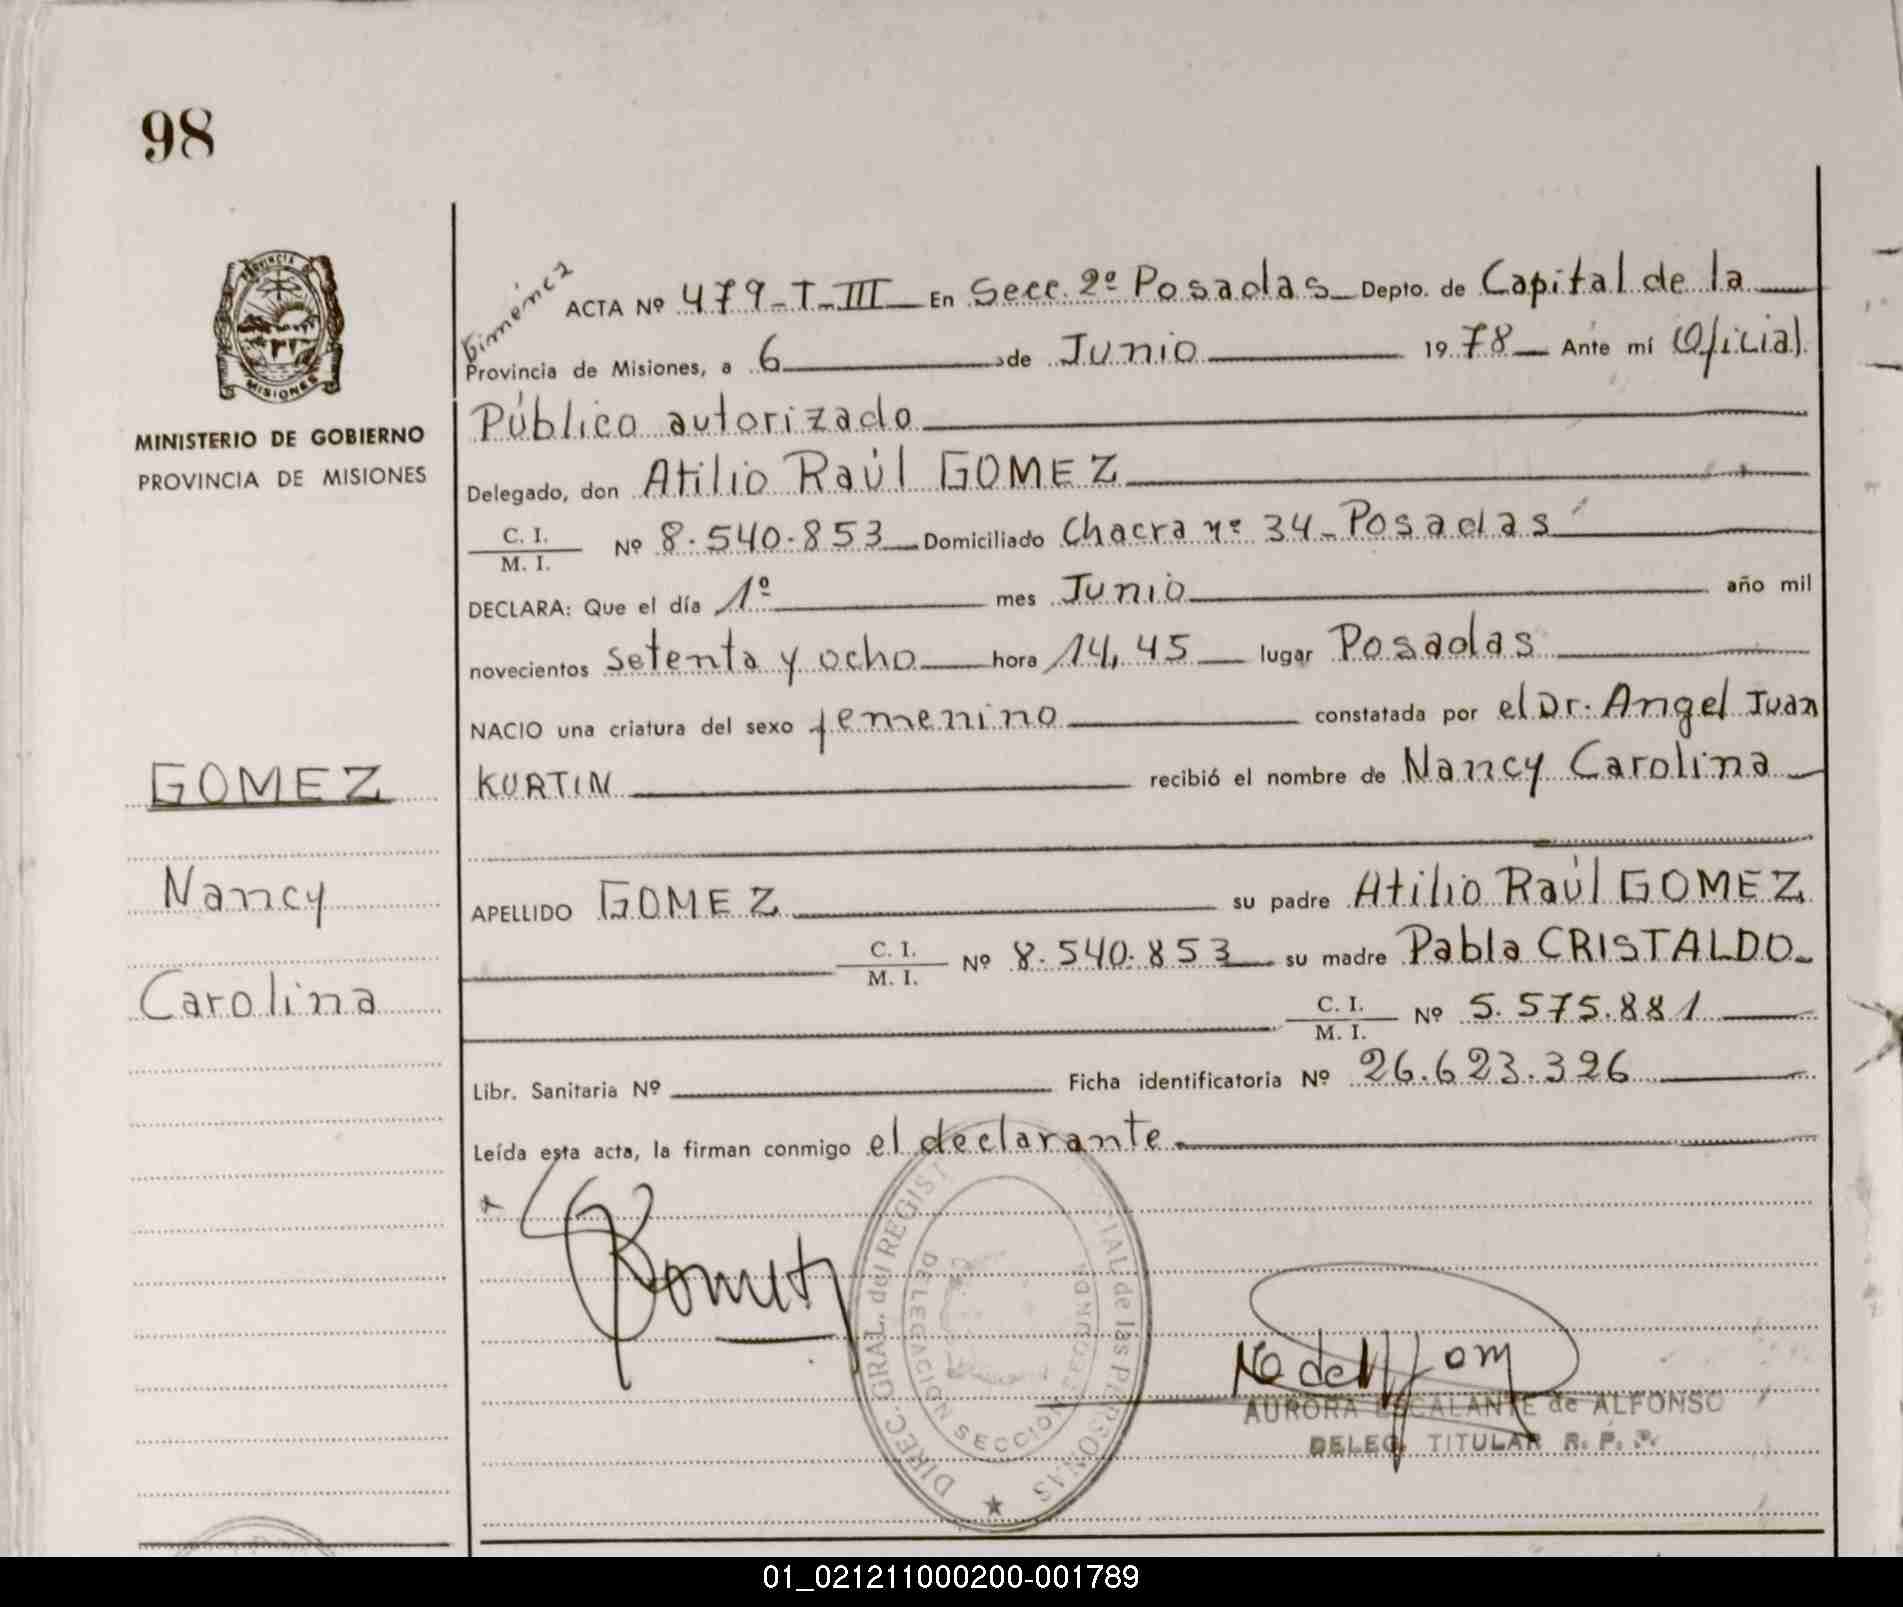 98
PROVINCIA DE
MISIONES
MINISTERIO DE GOBIERNO
PROVINCIA DE MISIONES
GOMEZ
Nancy
Carolina
Gimenez
ACTA Nº 479-T-III En Secc. 2º Posadas Depto. de Capital de la
Provincia de Misiones, a 6 de Junio 1978 Ante mí Oficial
Público autorizado
Delegado, don Atilio Raúl GOMEZ
C. I.
M. I.
Nº 8.540.853 Domiciliado Chacra nº 34-Posadas
DECLARA: Que el día 1º mes Junio año mil
novecientos setenta y ocho hora 14,45 lugar Posadas
NACIO una criatura del sexo femenino constatada por el Dr. Angel Juan
KURTIN recibió el nombre de Nancy Carolina
APELLIDO GOMEZ su padre Atilio Raúl GOMEZ
C. I.
M. I.
Nº 8.540.853 su madre Pabla CRISTALDO
C. I.
M. I.
Nº 5.575.881
Libr. Sanitaria Nº Ficha identificatoria Nº 26.623.326
Leída esta acta, la firman conmigo el declarante
DIREC. GRAL. del REGIST CIAL de las PERSONAS
DELEGACION SECCION SEGUNDA
AURORA ESCALANTE de ALFONSO
DELEG. TITULAR R. P. P.
01_021211000200-001789